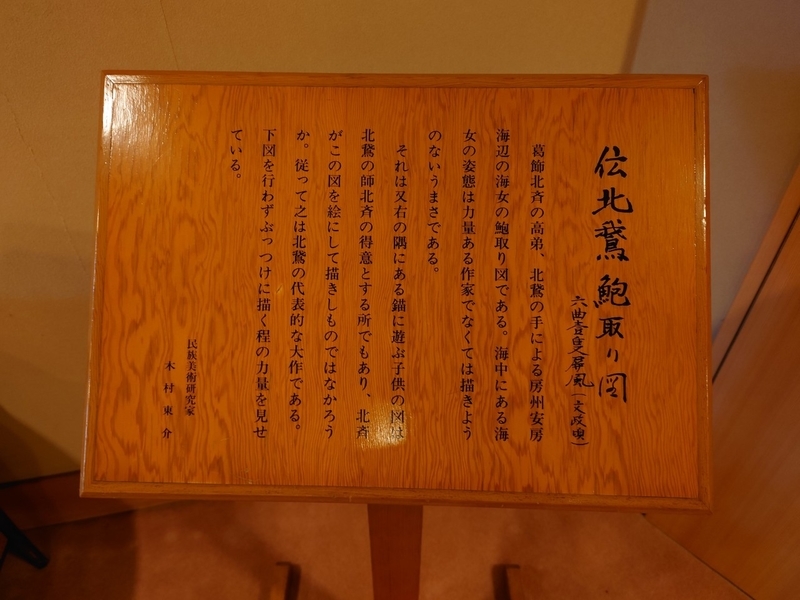 伝北鵞鮑取り図
六曲壹隻屏風(文政頃)
葛飾北斉の高弟、北鵞の手による房州安房
海辺の海女の鮑取り図である。海中にある海
女の姿態は力量ある作家でなくては描きよう
のないうまさである。
それは又右の隅にある錨に遊ぶ子供の図は
北鵞の師北斉の得意とする所でもあり、北斉
がこの図を絵にして描きしものではなかろう
か。従って之は北鵞の代表的な大作である。
下図を行わずぶっつけに描く程の力量を見せ
ている。
民族美術研究家
木村東介